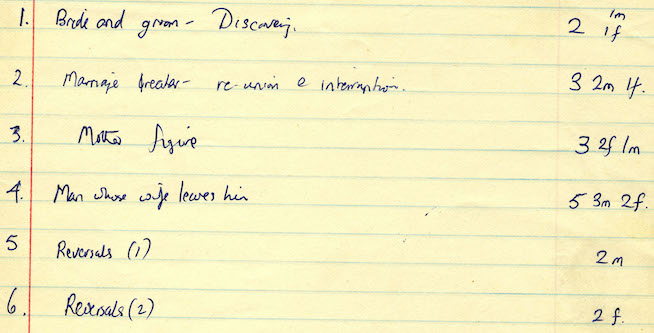 1. Bride and groom - Discovery. 2 1m 1f
2. Marriage breaker - re-union & interruption. 3 2m 1f.
3. Mother figure 3 2f 1m
4. Man whose wife leaves him 5 3m 2f.
5 Reversals (1) 2m
6. Reversals (2) 2f.